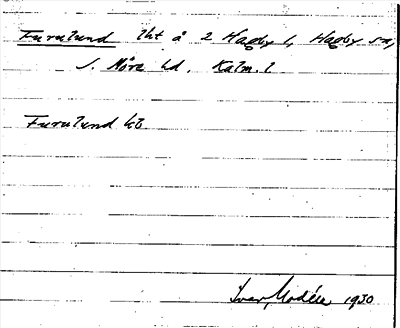 Furulund lht å 2 Hagby l, Hagby sn,
S. Möre hd, Kalm. l.
Furulund kb.
Ivar Modéer 1930